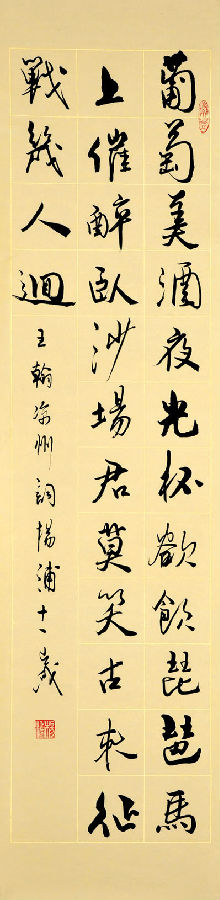 葡萄美酒夜光杯欲飲琵琶馬
上催醉臥沙場君莫笑古來征
戰幾人迴
王翰涼州詞楊浦十一歲